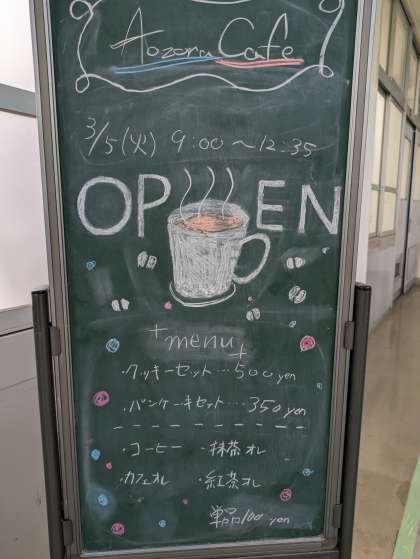 Aozora Café
3/5(火) 9:00～12:35
OPEN
menu
・クッキーセット…500yen
・パンケーキセット…350yen
・コーヒー ・抹茶オレ
・カフェオレ ・紅茶オレ
単品100yen